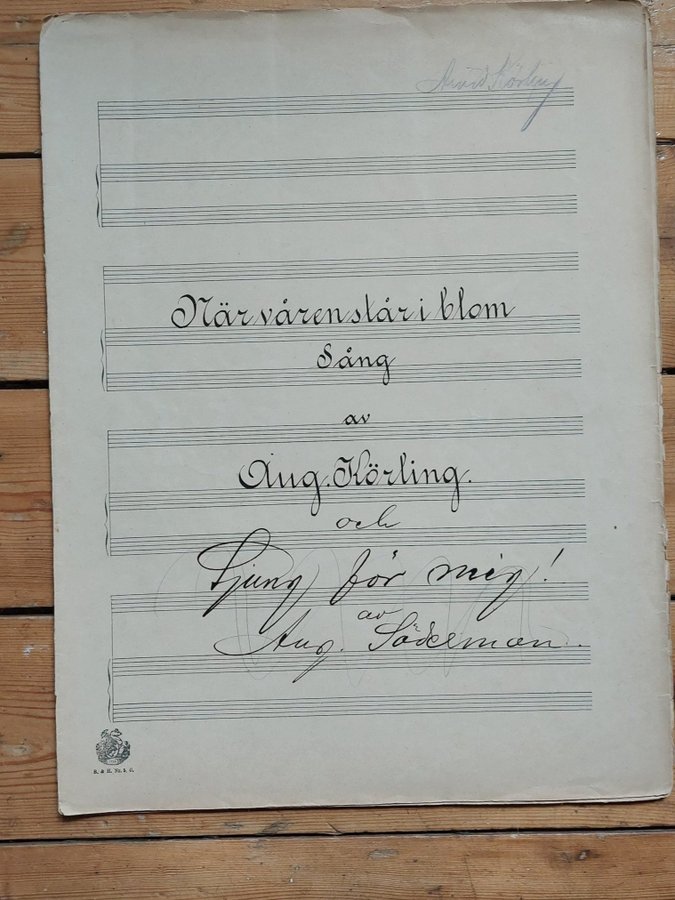 När våren står i blom
Sång
av
Aug. Körling.
och
Sjung för mig!
av
Aug. Söderman.
B. & H. Nr. 5. C.